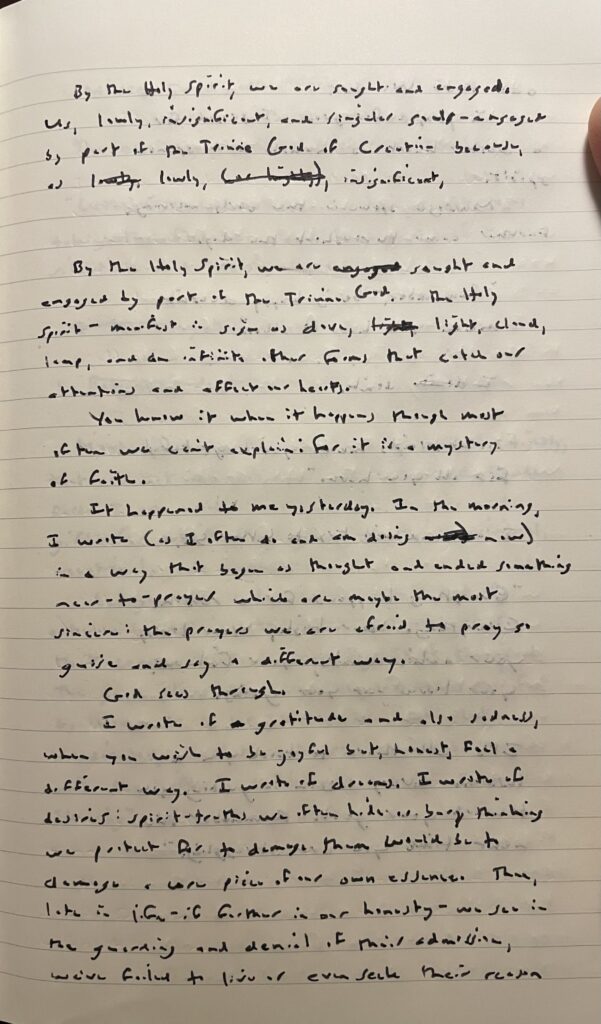 By the Holy Spirit, we are sought and engaged.
Us, lowly, insignificant, and singular souls - engaged
by part of the Triune God of Creation because,
as lowly, insignificant,
By the Holy Spirit, we are sought and
engaged by part of the Triune God. The Holy
Spirit - manifest in sign as dove, light, cloud,
lamp, and an infinite other forms that catch our
attentions and affect our hearts.
You know it when it happens though most
often we can't explain: for it is a mystery
of faith.
It happened to me yesterday. In the morning,
I wrote (as I often do and am doing now)
in a way that began as thought and ended something
near-to-prayer which are maybe the most
sincere: the prayers we are afraid to pray so
guise and say a different way.
God sees through.
I wrote of gratitude and also sadness,
when you wish to be joyful but, honest, feel a
different way. I wrote of dreams. I wrote of
desires: spirit-truths we often hide or bury thinking
we protect for to damage them would be to
damage a core piece of our own essence. Then,
late in life - if further in our honesty - we see in
the guarding and denial of their admission,
we've failed to live or even seek their reason